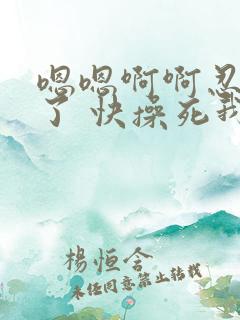 嗯嗯啊啊忍
了快操死我
楊恒含
未经同意禁止转载